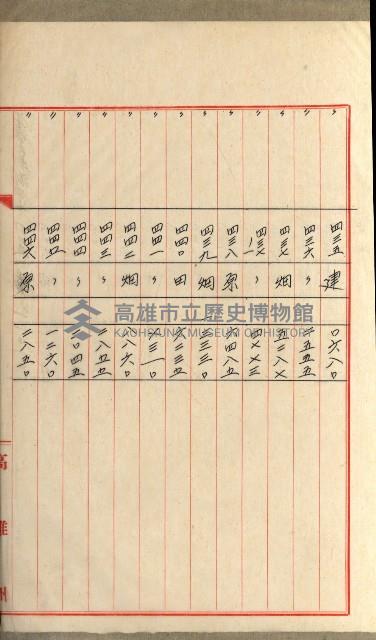 〃 四三五 建 〇六八〇
〃 四三六 〃 二五五五
〃 四三七 畑 五二八七
〃 四三七ノ一 〃 四七七三
〃 四三八 原 六四八五
〃 四三九 畑 三三三〇
〃 四四〇 田 六二三五
〃 四四一 〃 七三一〇
〃 四四二 畑 八六〇
〃 四四三 〃 二八五五
〃 四四四 〃 二〇四五
〃 四四五 〃 一二六〇
〃 四四六 原 二八五〇
高雄州
高雄市立歷史博物館
KAOHSIUNG MUSEUM OF HISTORY